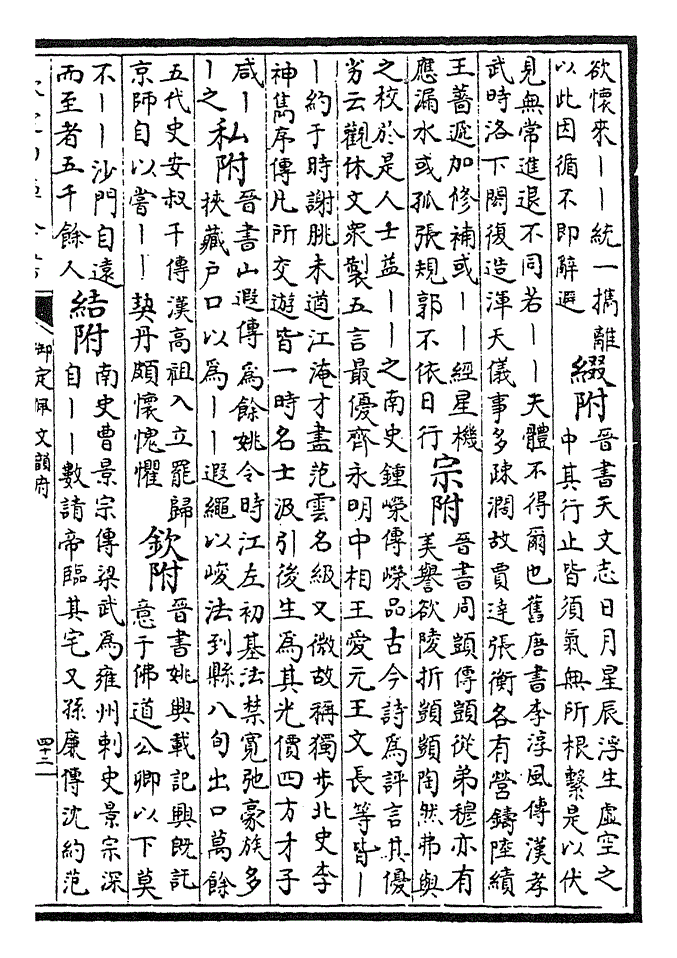 欲懷來丨丨統一擕離
以此因循不即辭避
綴附
晉書天文志日月星辰浮生虛空之
中其行止皆須氣無所根繫是以伏
見無常進退不同若丨丨天體不得爾也舊唐書李淳風傳漢孝
武時洛下閎復造渾天儀事多疎濶故賈逵張衡各有營鑄陸績
王蕃遞加修補或丨丨經星機
應漏水或孤張規郭不依日行
宗附
晉書周顗傳顗從弟穆亦有
美譽欲陵折顗顗陶然弗與
之校於是人士益丨丨之南史鍾嶸傳嶸品古今詩為評言其優
劣云觀休文衆製五言最優齊永明中相王愛元王文長等皆丨
丨約于時謝朓未遒江淹才盡范雲名級又微故稱獨步北史李
神雋序傳凡所交遊皆一時名士汲引後生為其光價四方才子
咸丨
丨之
私附
晉書山遐傳為餘姚令時江左初基法禁寬弛豪族多
挾藏戶口以為丨丨遐繩以峻法到縣八旬出口萬餘
五代史安叔千傳漢高祖入立罷歸
京師自以嘗丨丨契丹頗懷愧懼
欽附
晉書姚興載記興既託
意于佛道公卿以下莫
不丨丨沙門自遠
而至者五千餘人
結附
南史曹景宗傳梁武為雍州刺史景宗深
自丨丨數請帝臨其宅又孫廉傳沈約范
御定佩文韻府
四十二